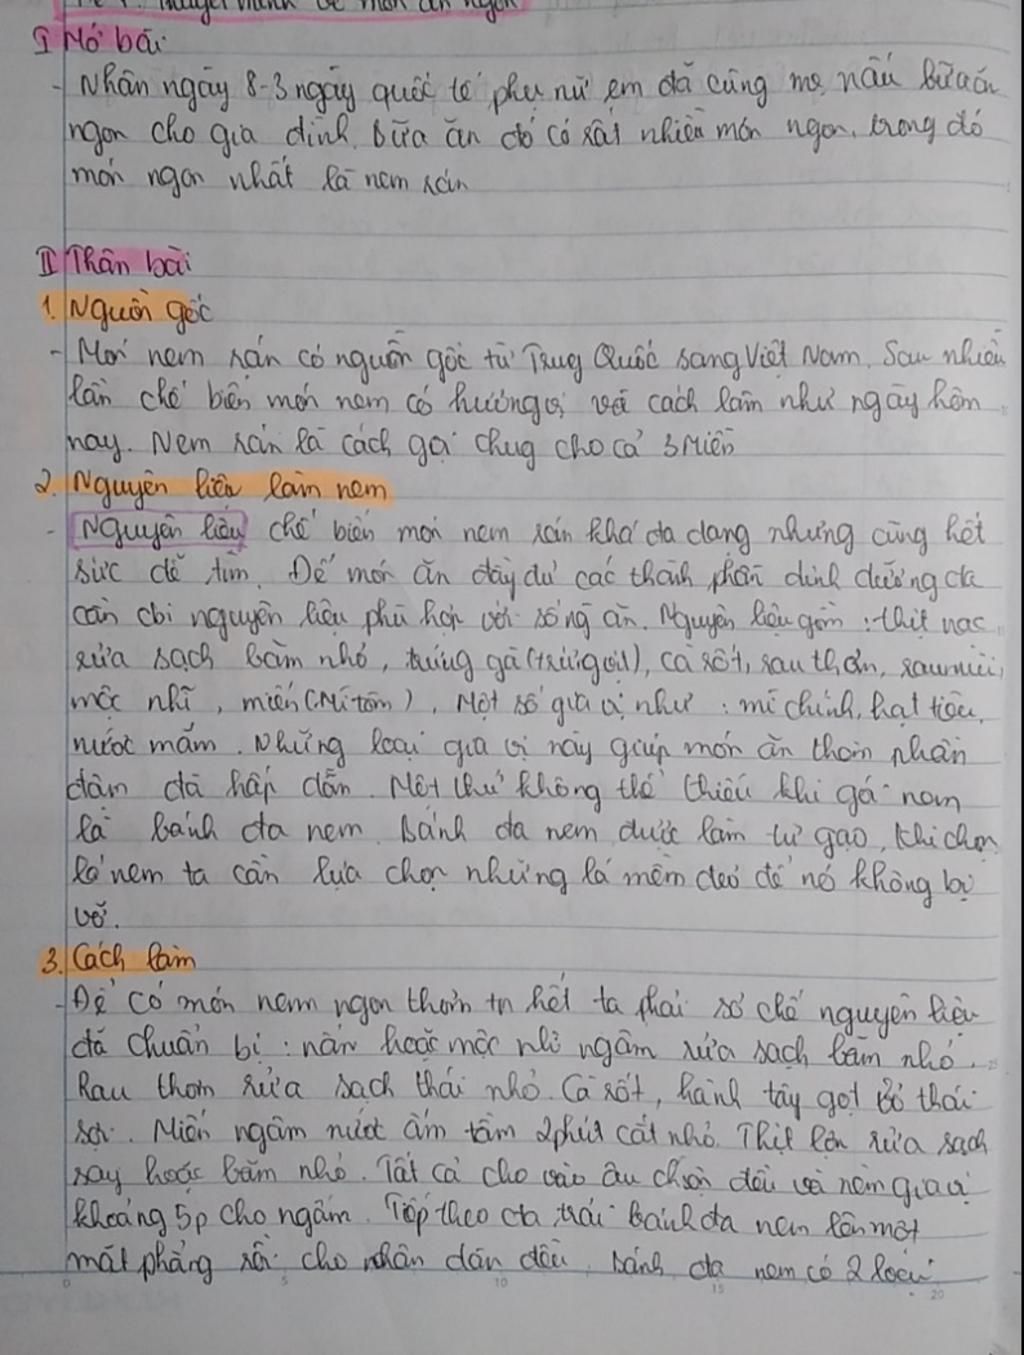 Thuyết minh về món ăn ngon
I Mở bài
- Nhân ngày 8-3 ngày quốc tế phụ nữ em đã cùng mẹ nấu bữa ăn
ngon cho gia đình. Bữa ăn đó có rất nhiều món ngon, trong đó
món ngon nhất là nem rán
II Thân bài
1. Nguồn gốc
- Món nem rán có nguồn gốc từ Trug Quốc sang Việt Nam. Sau nhiều
lần chế biến món nem có hương vị và cách làm như ngày hôm
nay. Nem rán là cách gọi chug cho cả 3 Miền
2. Nguyên liệu làm nem
- Nguyên liệu chế biến món nem rán khá đa dạng nhưng cũng hết
sức dễ tìm. Để món ăn đầy đủ các thành phần dinh dưỡng ta
cần cbi nguyên liệu phù hợp với số ng ăn. Nguyên liệu gồm : thịt nạc
rửa sạch băm nhỏ, trứng gà (trứng vịt), cà rốt, rau thơm, rau mùi,
mộc nhĩ, miến (Mì tôm), Một số gia vị như : mì chính, hạt tiêu,
nước mắm. Những loại gia vị này giúp món ăn thơm phần
đậm đà hấp dẫn. Một thứ không thể thiếu khi gói nem
là bánh đa nem. Bánh đa nem được làm từ gạo, khi chọn
lá nem ta cần lựa chọn những lá mềm dẻo để nó không bị
vỡ.
3. Cách làm
- Để có món nem ngon thơm tr hết ta phải sơ chế nguyên liệu
đã chuẩn bị : nấm hoặc mộc nhĩ ngâm rửa sạch băm nhỏ.
Rau thơm rửa sạch thái nhỏ. Cà rốt, hành tây gọt bỏ thái
sợi. Miến ngâm nước ấm tầm 2 phút cắt nhỏ. Thịt lợn rửa sạch
xay hoặc băm nhỏ. Tất cả cho vào âu trộn đều và nêm gia vị
khoảng 5p cho ngấm. Tiếp theo ta trải bánh đa nem lên một
mặt phẳng rồi cho nhân dàn đều. Bánh đa nem có 2 loại
0 5 10 15 20